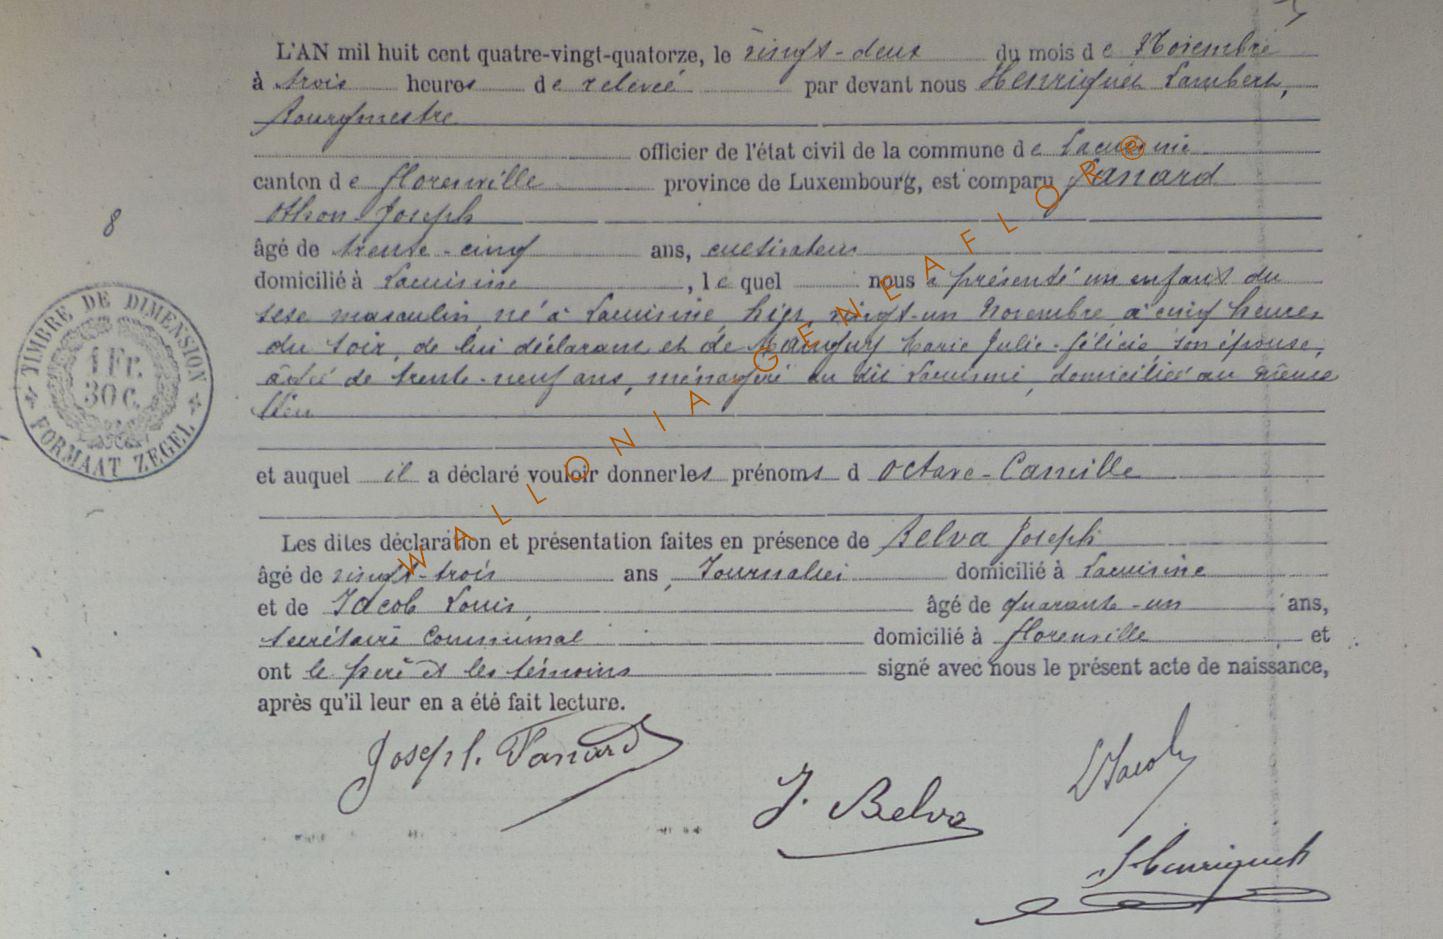 L'AN mil huit cent quatre-vingt-quatorze, le vingt-deux du mois de Novembre
à trois heures de relevée par devant nous Henriquet Lambert,
Bourgmestre
officier de l'état civil de la commune de Lacuisine
canton de Florenville province de Luxembourg, est comparu Fanard
Othon Joseph
8
âgé de trente-cinq ans, cultivateur
domicilié à Lacuisine, le quel nous a présenté un enfant du
sexe masculin, né à Lacuisine, hier, vingt-un Novembre, à cinq heures
du soir, de lui déclarant et de Marie Julie-Félicie, son épouse,
âgée de trente-neuf ans, ménagère au dit Lacuisine, domiciliée au même
lieu
et auquel il a déclaré vouloir donner les prénoms d Octave-Camille
Les dites déclaration et présentation faites en présence de Belva Joseph
âgé de vingt-trois ans, Journalier domicilié à Lacuisine
et de Jacob Louis, âgé de quarante-un ans,
secrétaire communal domicilié à Florenville et
ont le père et les témoins signé avec nous le présent acte de naissance,
après qu'il leur en a été fait lecture.
TIMBRE DE DIMENSION
1 Fr.
30 C.
FORMAAT ZEGEL
WALLONIA GENEAFLOR ®
Joseph. Fanard
L Jacob
J. Belva
Henriquet